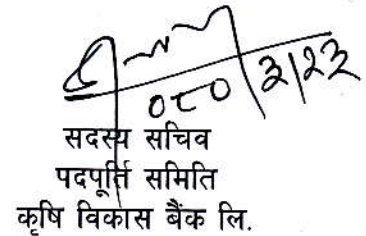 ०८०|३|२३
सदस्य सचिव
पदपूर्ति समिति
कृषि विकास बैंक लि.